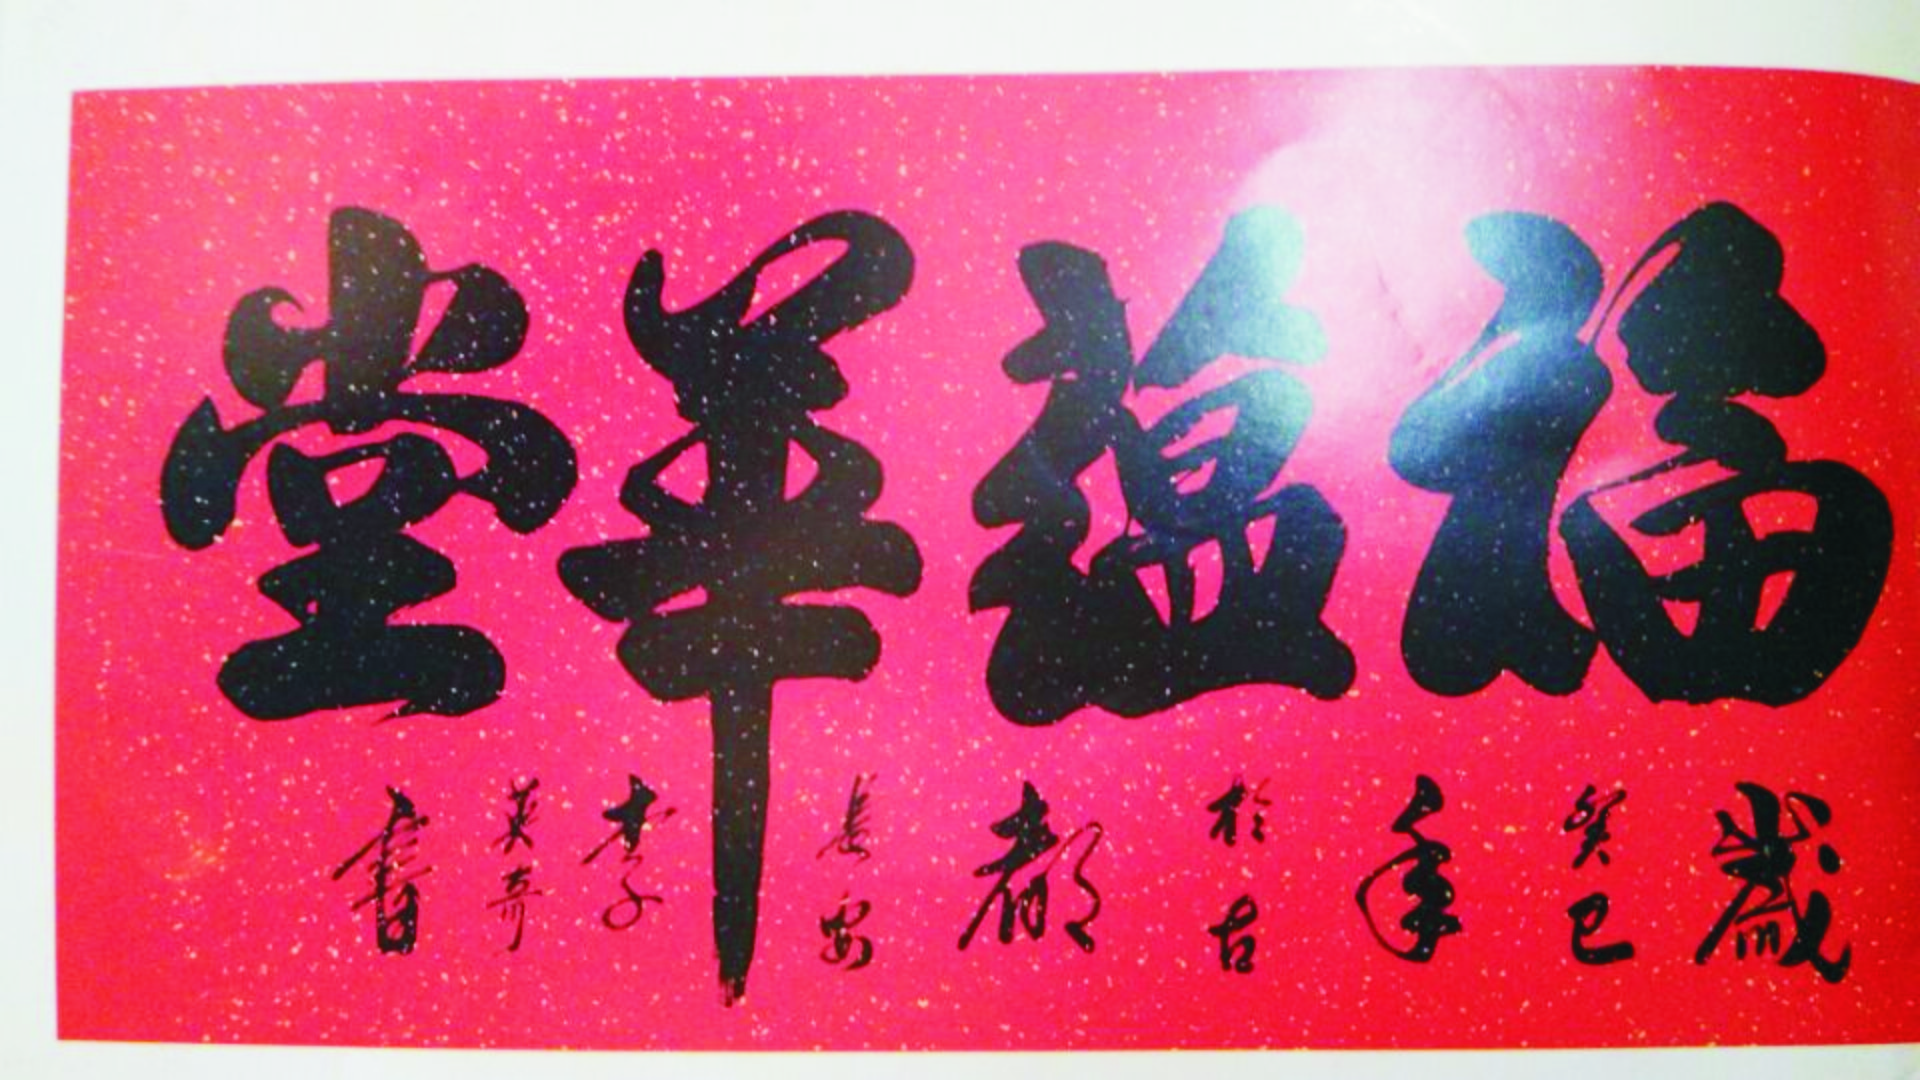 福蕴華堂
歲癸巳年於古都長安李英奇書